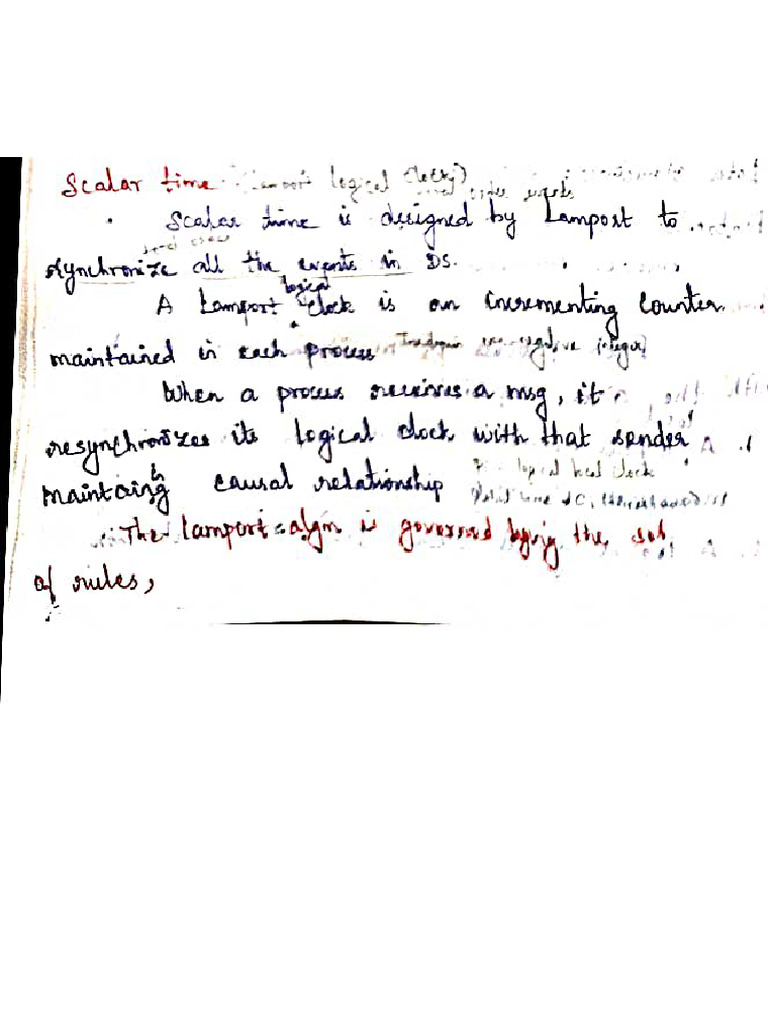 Scalar time (Lamport logical clock)
Scalar time is designed by Lamport to
synchronize all the events in DS.
logical
A Lamport clock is an incrementing counter
maintained in each process
When a process receives a msg, it
resynchronizes its logical clock with that sender
maintaing causal relationship
logical local clock
The lamport algm is governed by the set
of rules,